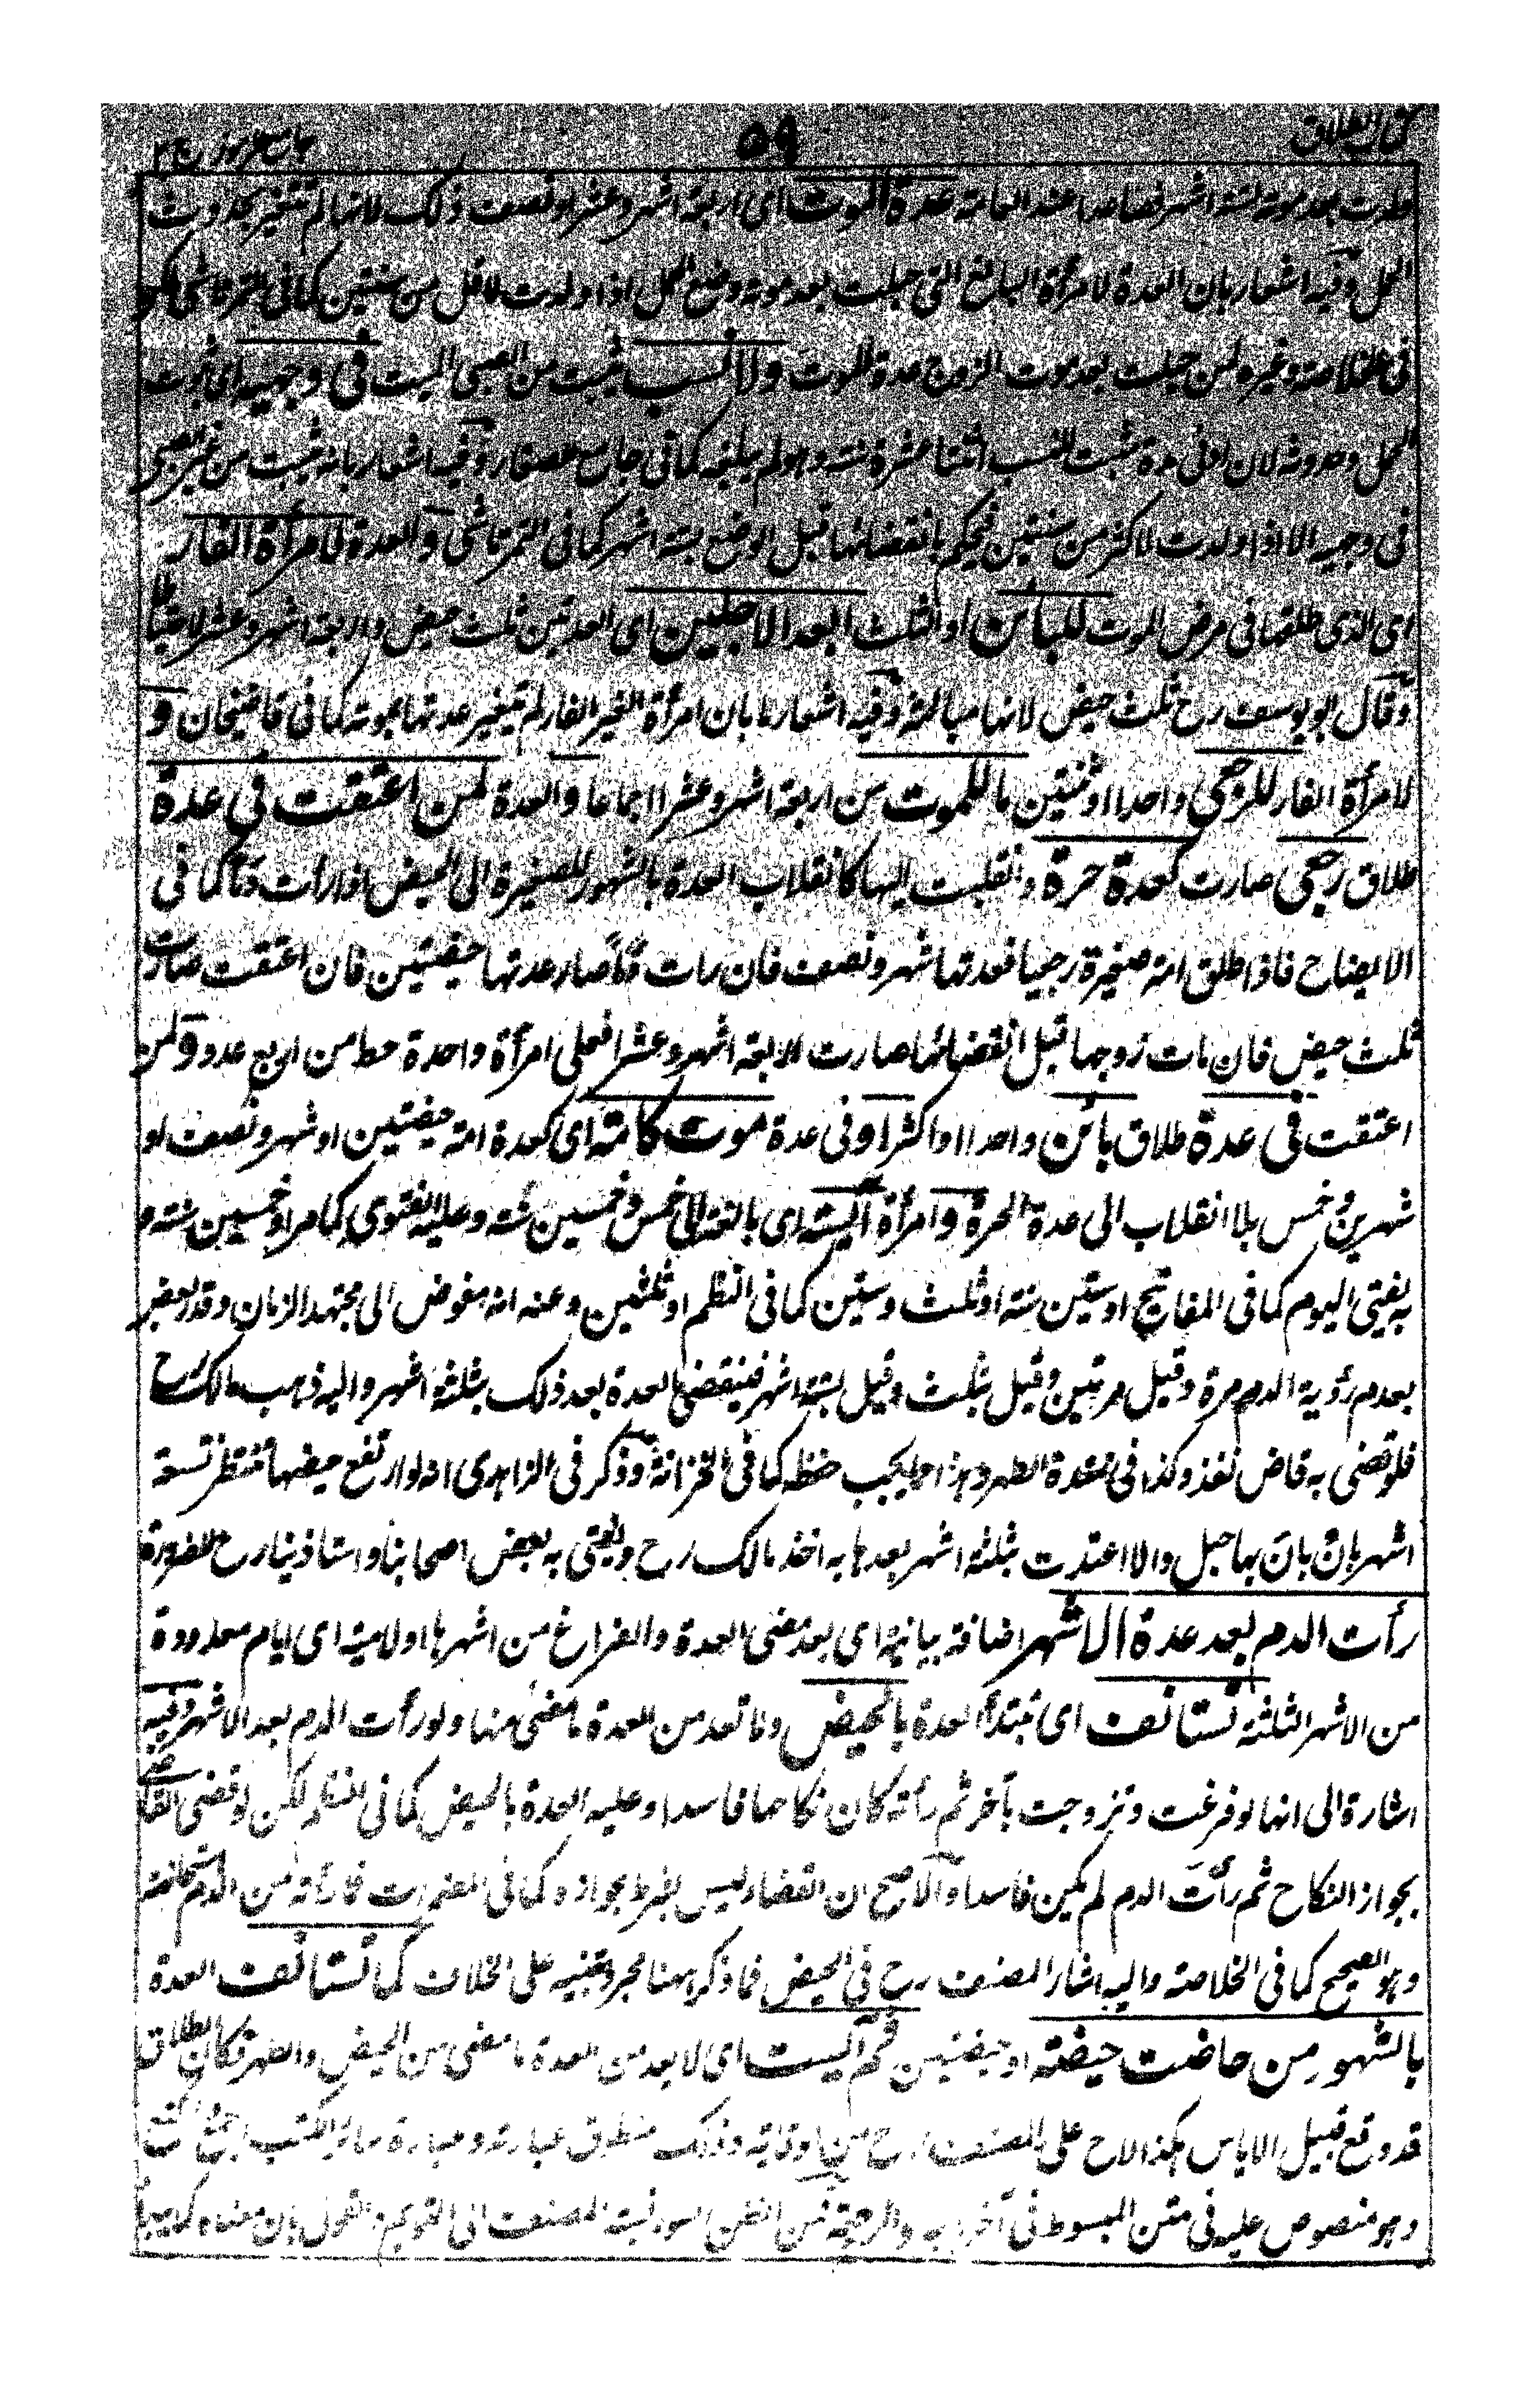 كتاب الطلاق ٥٩ جامع الرموز ج٢
ولدت بعد موته لستة اشهر فصاعدا عند العامة عدة الموت اى اربعة اشهر وعشر او نصف ذلك لانها لم تتغير بحدوث
الحمل وفيه اشعار بان العدة لامرأة البالغ التى حبلت بعد موته وضع الحمل اذا ولدت لاقل من سنتين كما فى التمرتاشى لكن
فى الخلاصة وغيره لمن حبلت بعد موت الزوج عدة الموت ولا نسب يثبت من الصبى الميت فى وجهيه اى ثبوت
الحمل وحدوثه لان ادنى مدة يثبت النسب اثنتا عشرة سنة وهو لم يبلغه كما فى جامع الصغار وفيه اشعار بانه يثبت من غير الصبى
فى وجهيه الا اذا ولدت لاكثر من سنتين فيحكم بانقضائها قبل الوضع بستة اشهر كما فى التمرتاشى والعدة لامرأة الفار
اى الذى طلقها فى مرض الموت للبائن او الثلث ابعد الاجلين اى العدتين ثلث حيض واربعة اشهر وعشر احتياطا
وقال ابو يوسف رح ثلث حيض لانها مبانة وفيه اشعار بان امرأة الغير الفار لم تتغير عدتها بموته كما فى قاضيخان و
لامرأة الفار للرجعى واحدا او ثنتين ما للموت من اربعة اشهر وعشر اجماعا والعدة لمن اعتقت فى عدة
طلاق رجعى صارت كعدة حرة وانقلبت اليها كانقلاب العدة بالشهور للصغيرة الى الحيض اذا رأت دما كما فى
الايضاح فاذا طلق امة صغيرة رجعيا فعدتها شهر ونصف فان رات دما صار عدتها حيضتين فان اعتقت صارت
ثلث حيض فان مات زوجها قبل انقضائها صارت اربعة اشهر وعشرا فعلى امرأة واحدة حط من اربع عدد ولمن
اعتقت فى عدة طلاق بائن واحدا او اكثر او فى عدة موت كامة اى كعدة امة حيضتين او شهر ونصف او
شهرين وخمس بلا انقلاب الى عدة الحرة وامرأة آئسة اى بالغة الى خمس وخمسين سنة وعليه الفتوى كما مر او خمسين سنة و
به يفتى اليوم كما فى المفاتيح او ستين سنة او ثلث وستين كما فى النظم او ثلثين وعنه انه مفوض الى مجتهد الزمان وقدر بعضهم
بعدم رؤية الدم مرة وقيل مرتين وقيل بثلث وقيل بستة اشهر فينقضى العدة بعد ذلك بثلثة اشهر واليه ذهب مالك رح
فلو قضى به قاض نفذ وكذا فى ممتدة الطهر وهذا مما يجب حفظه كما فى الخزانة وذكر فى الزاهدى انه لو ارتفع حيضها تنتظر تسعة
اشهر فان بان بها حبل والا اعتدت بثلثة اشهر بعدها به اخذ مالك رح ويفتى به بعض اصحابنا واستاذينا رح للضرورة
رأت الدم بعد عدة الاشهر اضافة بيانية اى بعد مضى العدة والفراغ من اشهرها او لامية اى ايام معدودة
من الاشهر الثلثة تستانف اى تبتدأ العدة بالحيض ولا تعد من العدة ما مضى منها ولو رأت الدم بعد الاشهر وفيه
اشارة الى انها لو فرغت وتزوجت بآخر ثم رأته كان نكاحها فاسدا وعليه العدة بالحيض كما فى لكن لو قضى القاضى
بجواز النكاح ثم رأت الدم لم يكن فاسدا والاصح ان القضاء ليس بشرط بجوازه كما فى المضمرات فما رأته من الدم استحاضة
وهو الصحيح كما فى الخلاصة واليه اشار المصنف رح فى الحيض فما ذكر ههنا لمجرد تنبيه على الخلاف كما تستانف العدة
بالشهور من حاضت حيضة او حيضتين ثم آيست اى لا يعد من العدة ما مضى من الحيض والطهر فكان الطلاق
قد وقع قبيل الاياس هكذا لاح على المصنف رح من الوقاية وذلك منطوق عبارته وعبارة سائر الكتب
وهو منصوص عليه فى متن المبسوط فى آخر فمن الظن نسبة المصنف الى القول بان معناه